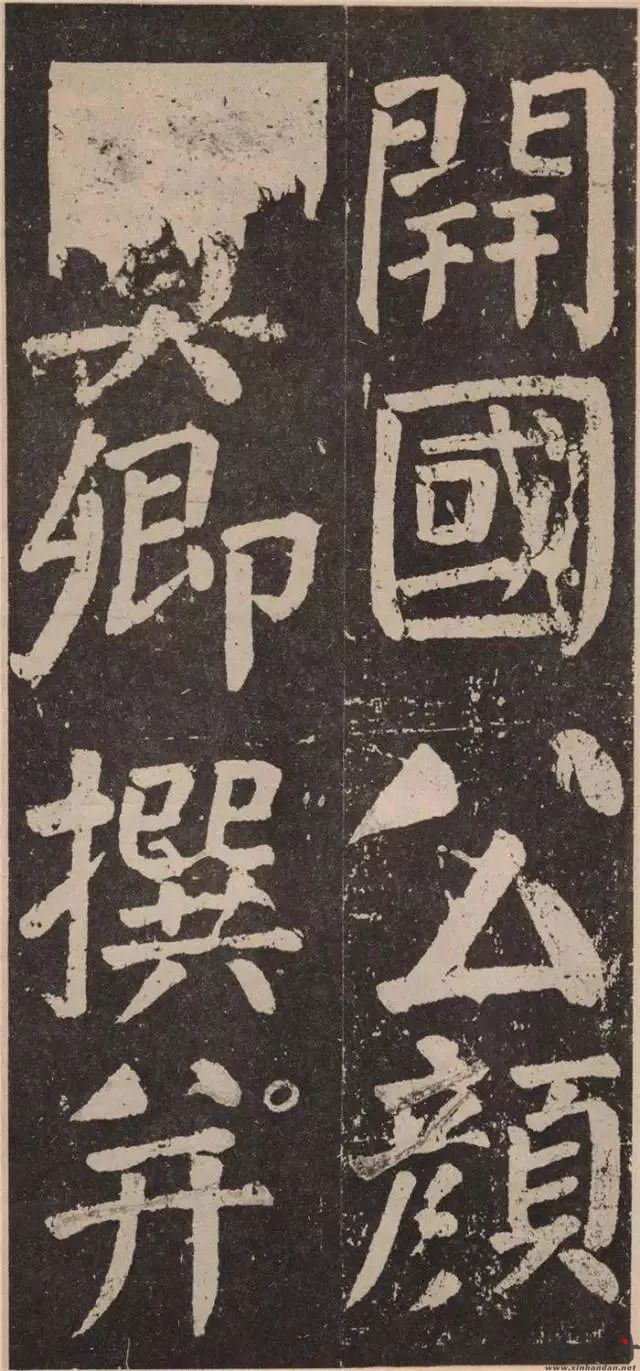 開國公顏
真卿撰并
www.xinhandan.net